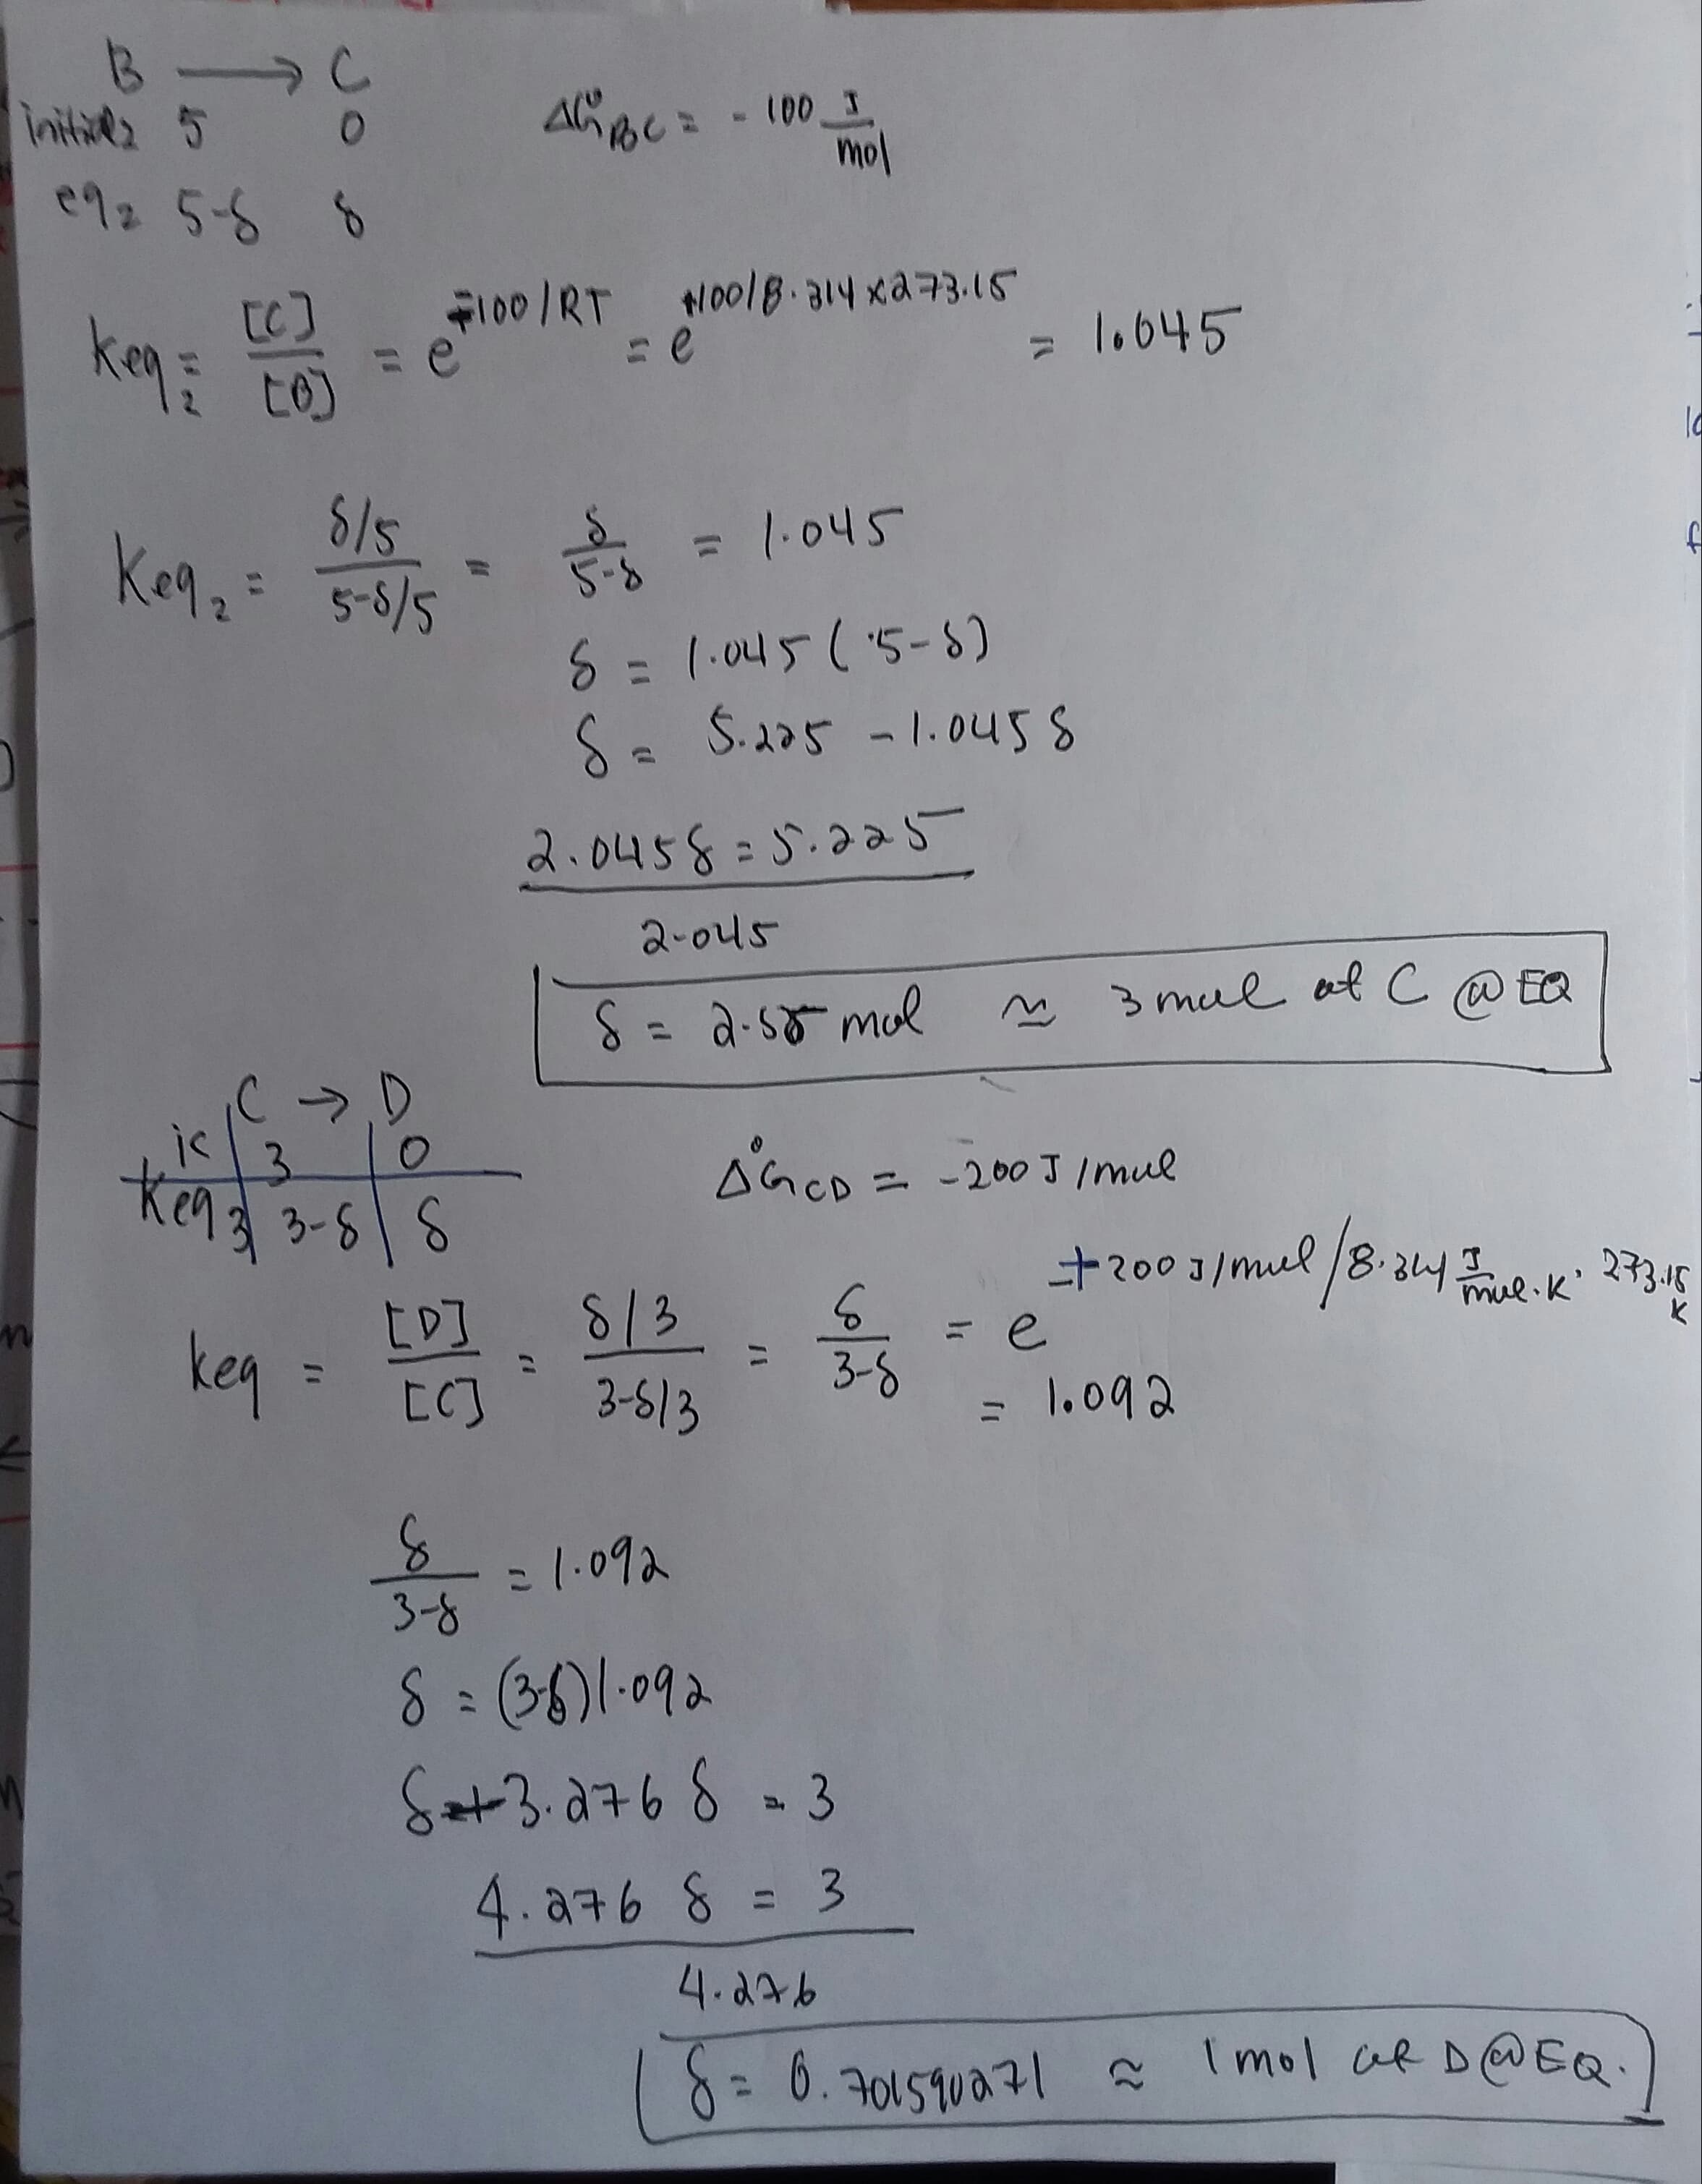 B ⟶ C
initial₂ 5 0 ΔG°BC = -100 J/mol
eq₂ 5-δ δ
Keq₂ = [C]/[B] = e^+100/RT = e^+100/8.314×273.15 = 1.045
Keq₂ = (δ/5)/(5-δ/5) = δ/(5-δ) = 1.045
δ = 1.045 (5-δ)
δ = 5.225 - 1.045 δ
2.045δ = 5.225
2.045
δ = 2.55 mol ≃ 3 mol of C @ EQ
C → D
ic 3 0 ΔG°CD = -200 J/mol
Keq3 3-δ δ
Keq = [D]/[C] = (δ/3)/(3-δ/3) = δ/(3-δ) = e^+200 J/mol/8.314 J/mol·K · 273.15 K
= 1.092
δ/(3-δ) = 1.092
δ = (3-δ)1.092
δ + 3.276 δ = 3
4.276 δ = 3
4.276
δ = 0.701590271 ≈ 1 mol of D @ EQ.